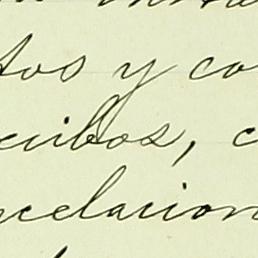 tos y co
cibos, c
ncelacion